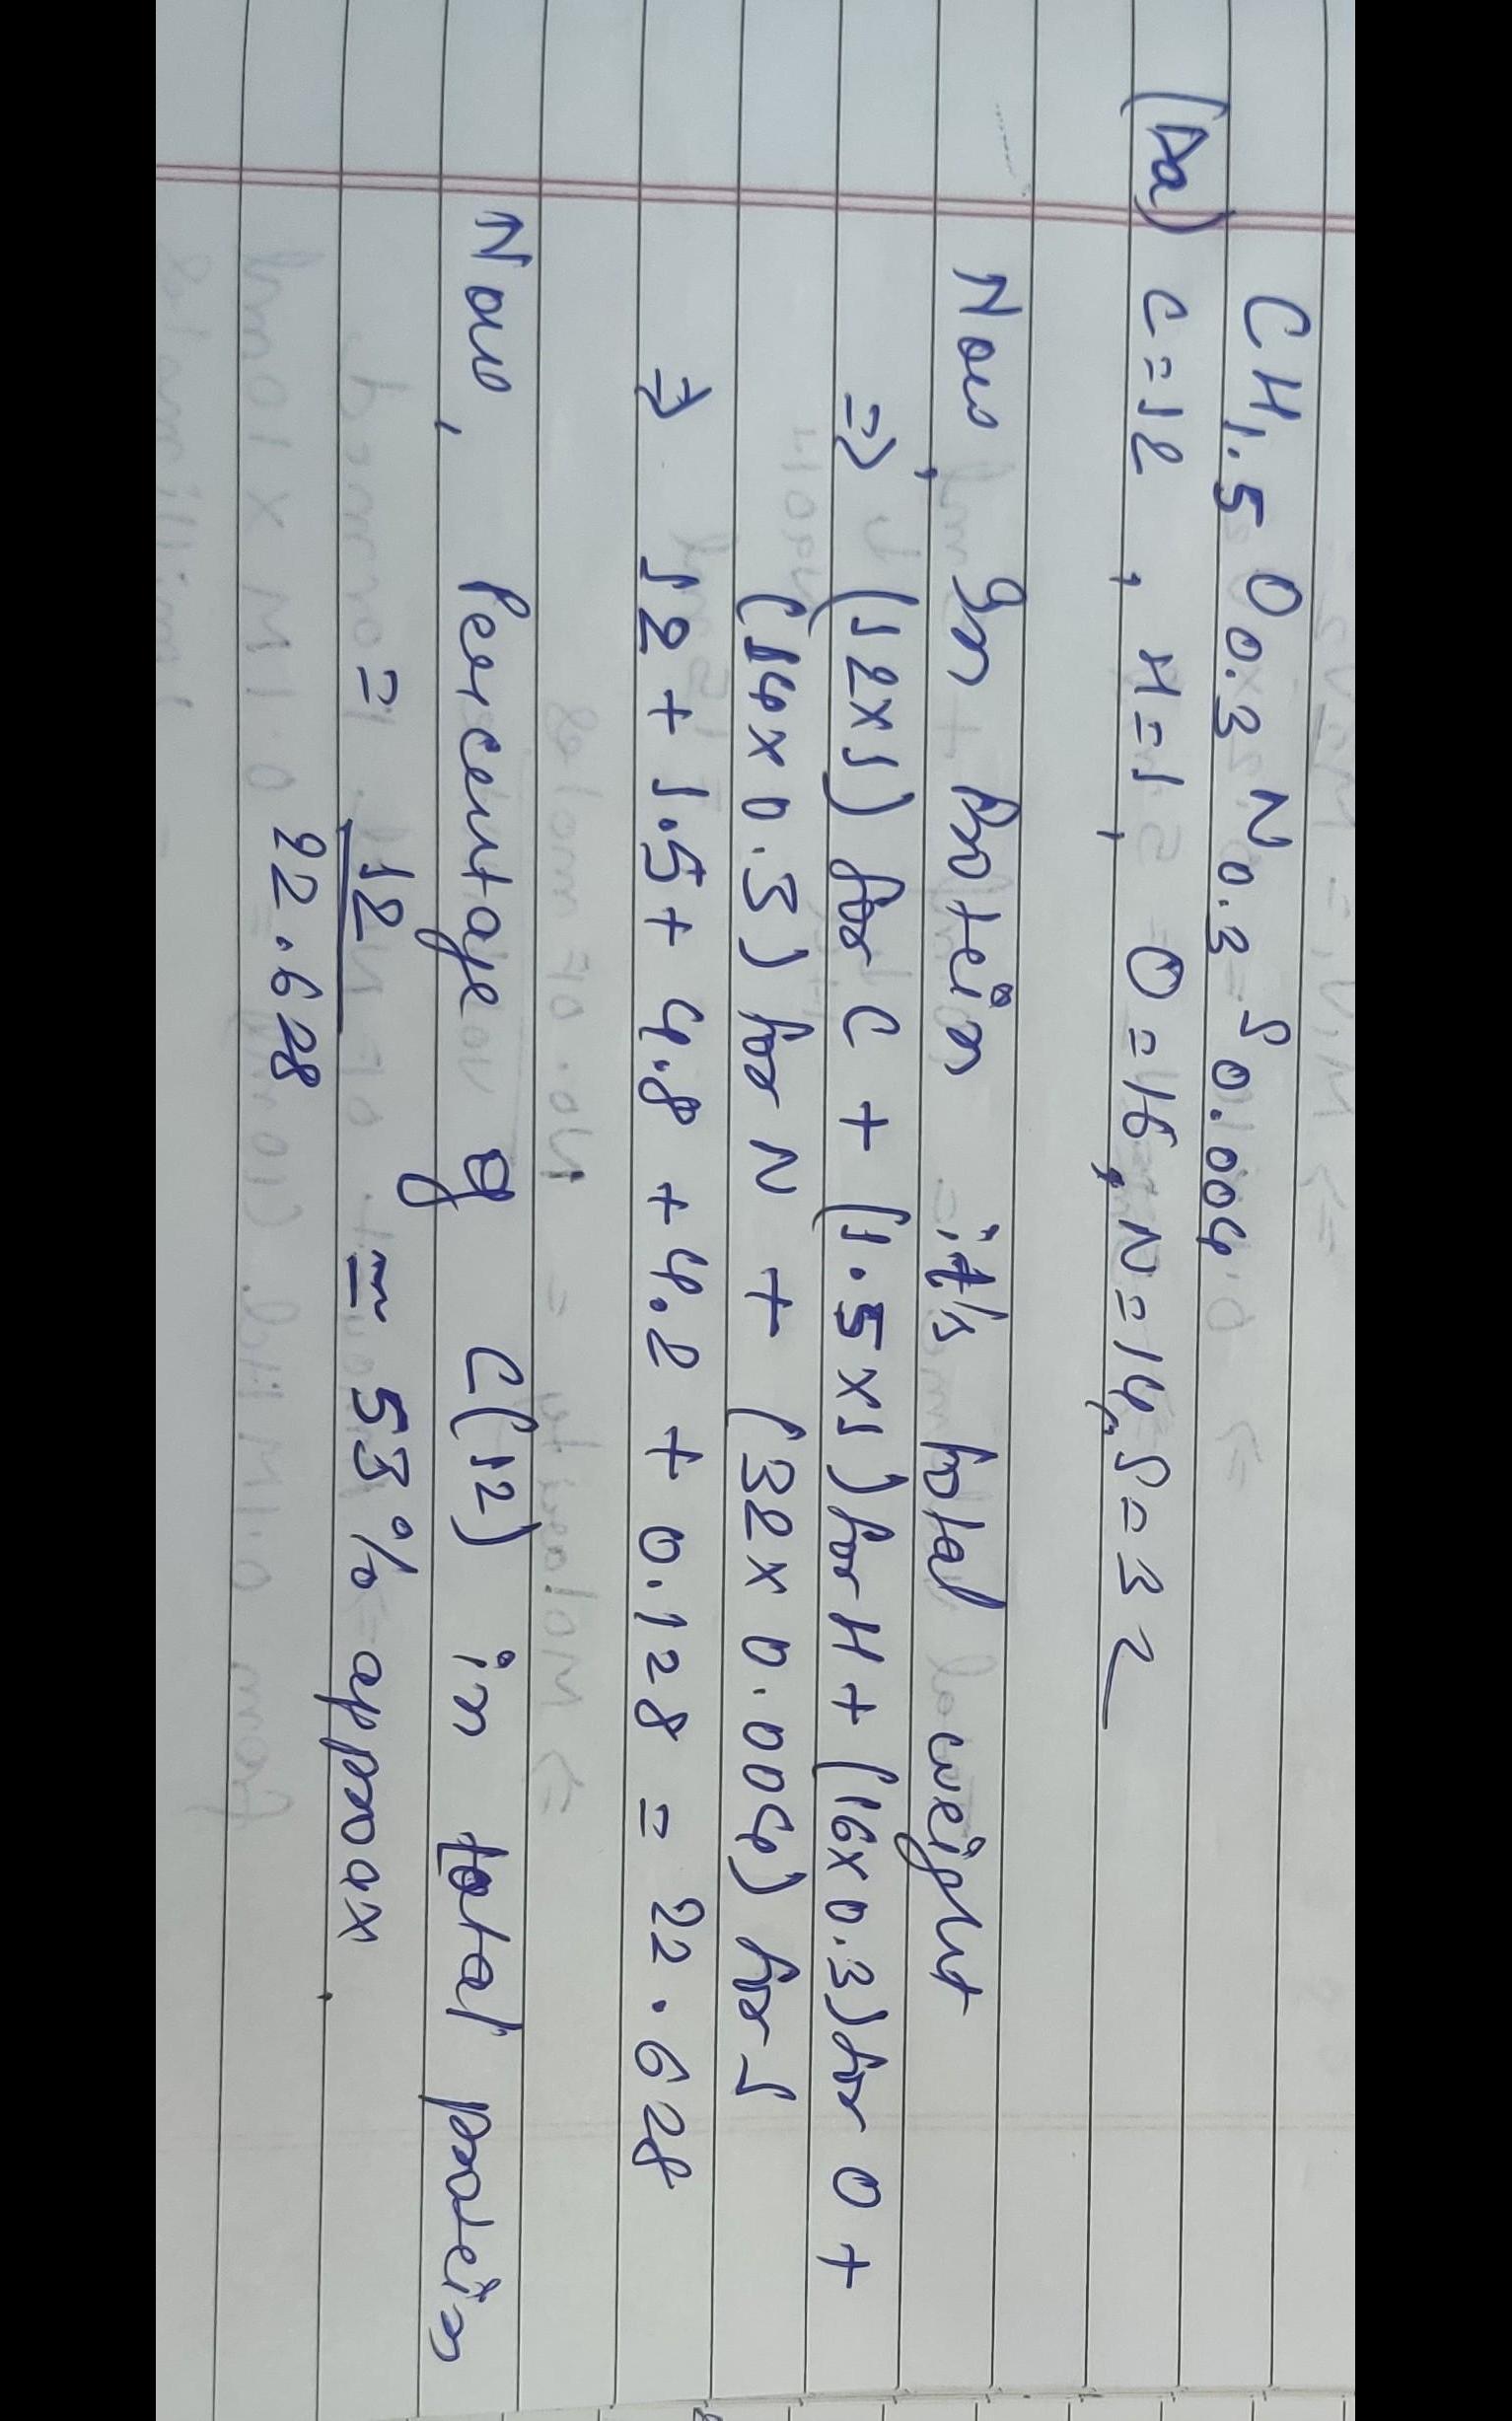 CH1.5 O0.3 N0.3 S0.004
(Da) C=12, H=1, O=16, N=14, S=32
Now, In Protein it's total weight
=> (12x1) for C + (1.5x1) for H + (16x0.3) for O +
(14x0.3) for N + (32x0.004) for S
=> 12 + 1.5 + 4.8 + 4.2 + 0.128 = 22.628
Now, Percentage of C(12) in total protein
= 12/22.628 ≃ 53% approax.